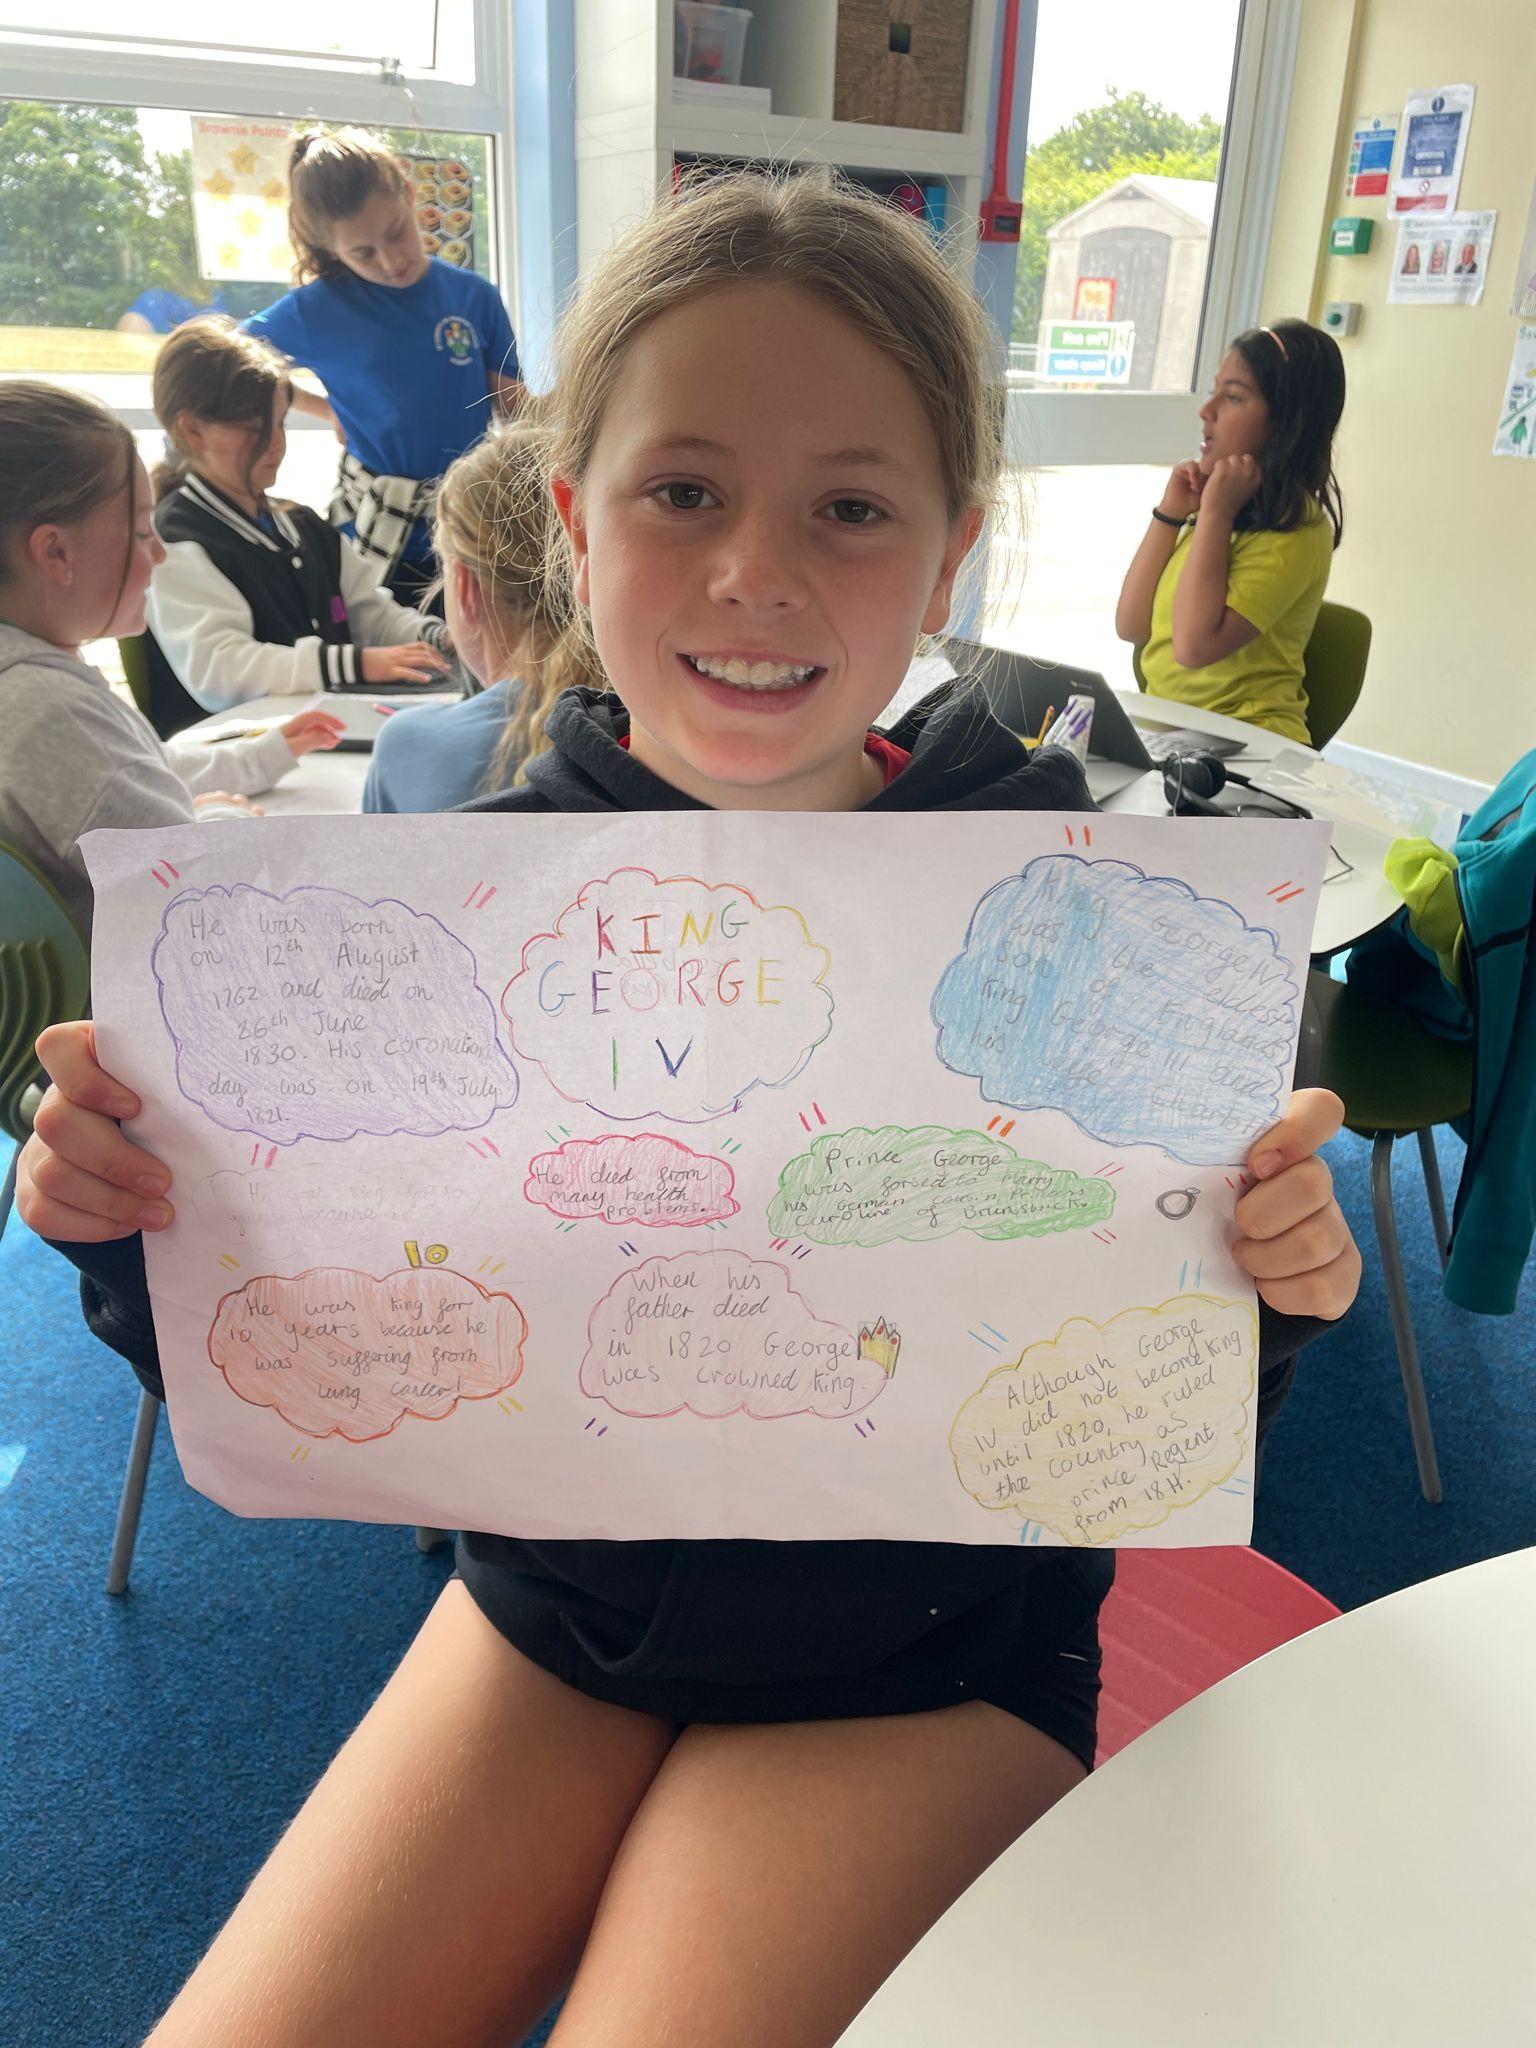 Brownie Points
Fire exit
Keep clear
He was born
on 12th August
1762 and died on
26th June
1830. His coronation
day was on 19th July
1821.
KING
GEORGE
IV
King George IV
was the eldest
son of Englands
King George III and
his wife Charlott
He died from
many health
problems.
Prince George
was forsed to marry
his German cousin, Princess
Caroline of Brunswick.
He was king for 10
years because he
10
He was king for
10 years because he
was suffering from
lung cancer!
When his
father died
in 1820 George
was crowned king.
Although George
IV did not become king
until 1820, he ruled
the country as
prince Regent
from 1811.